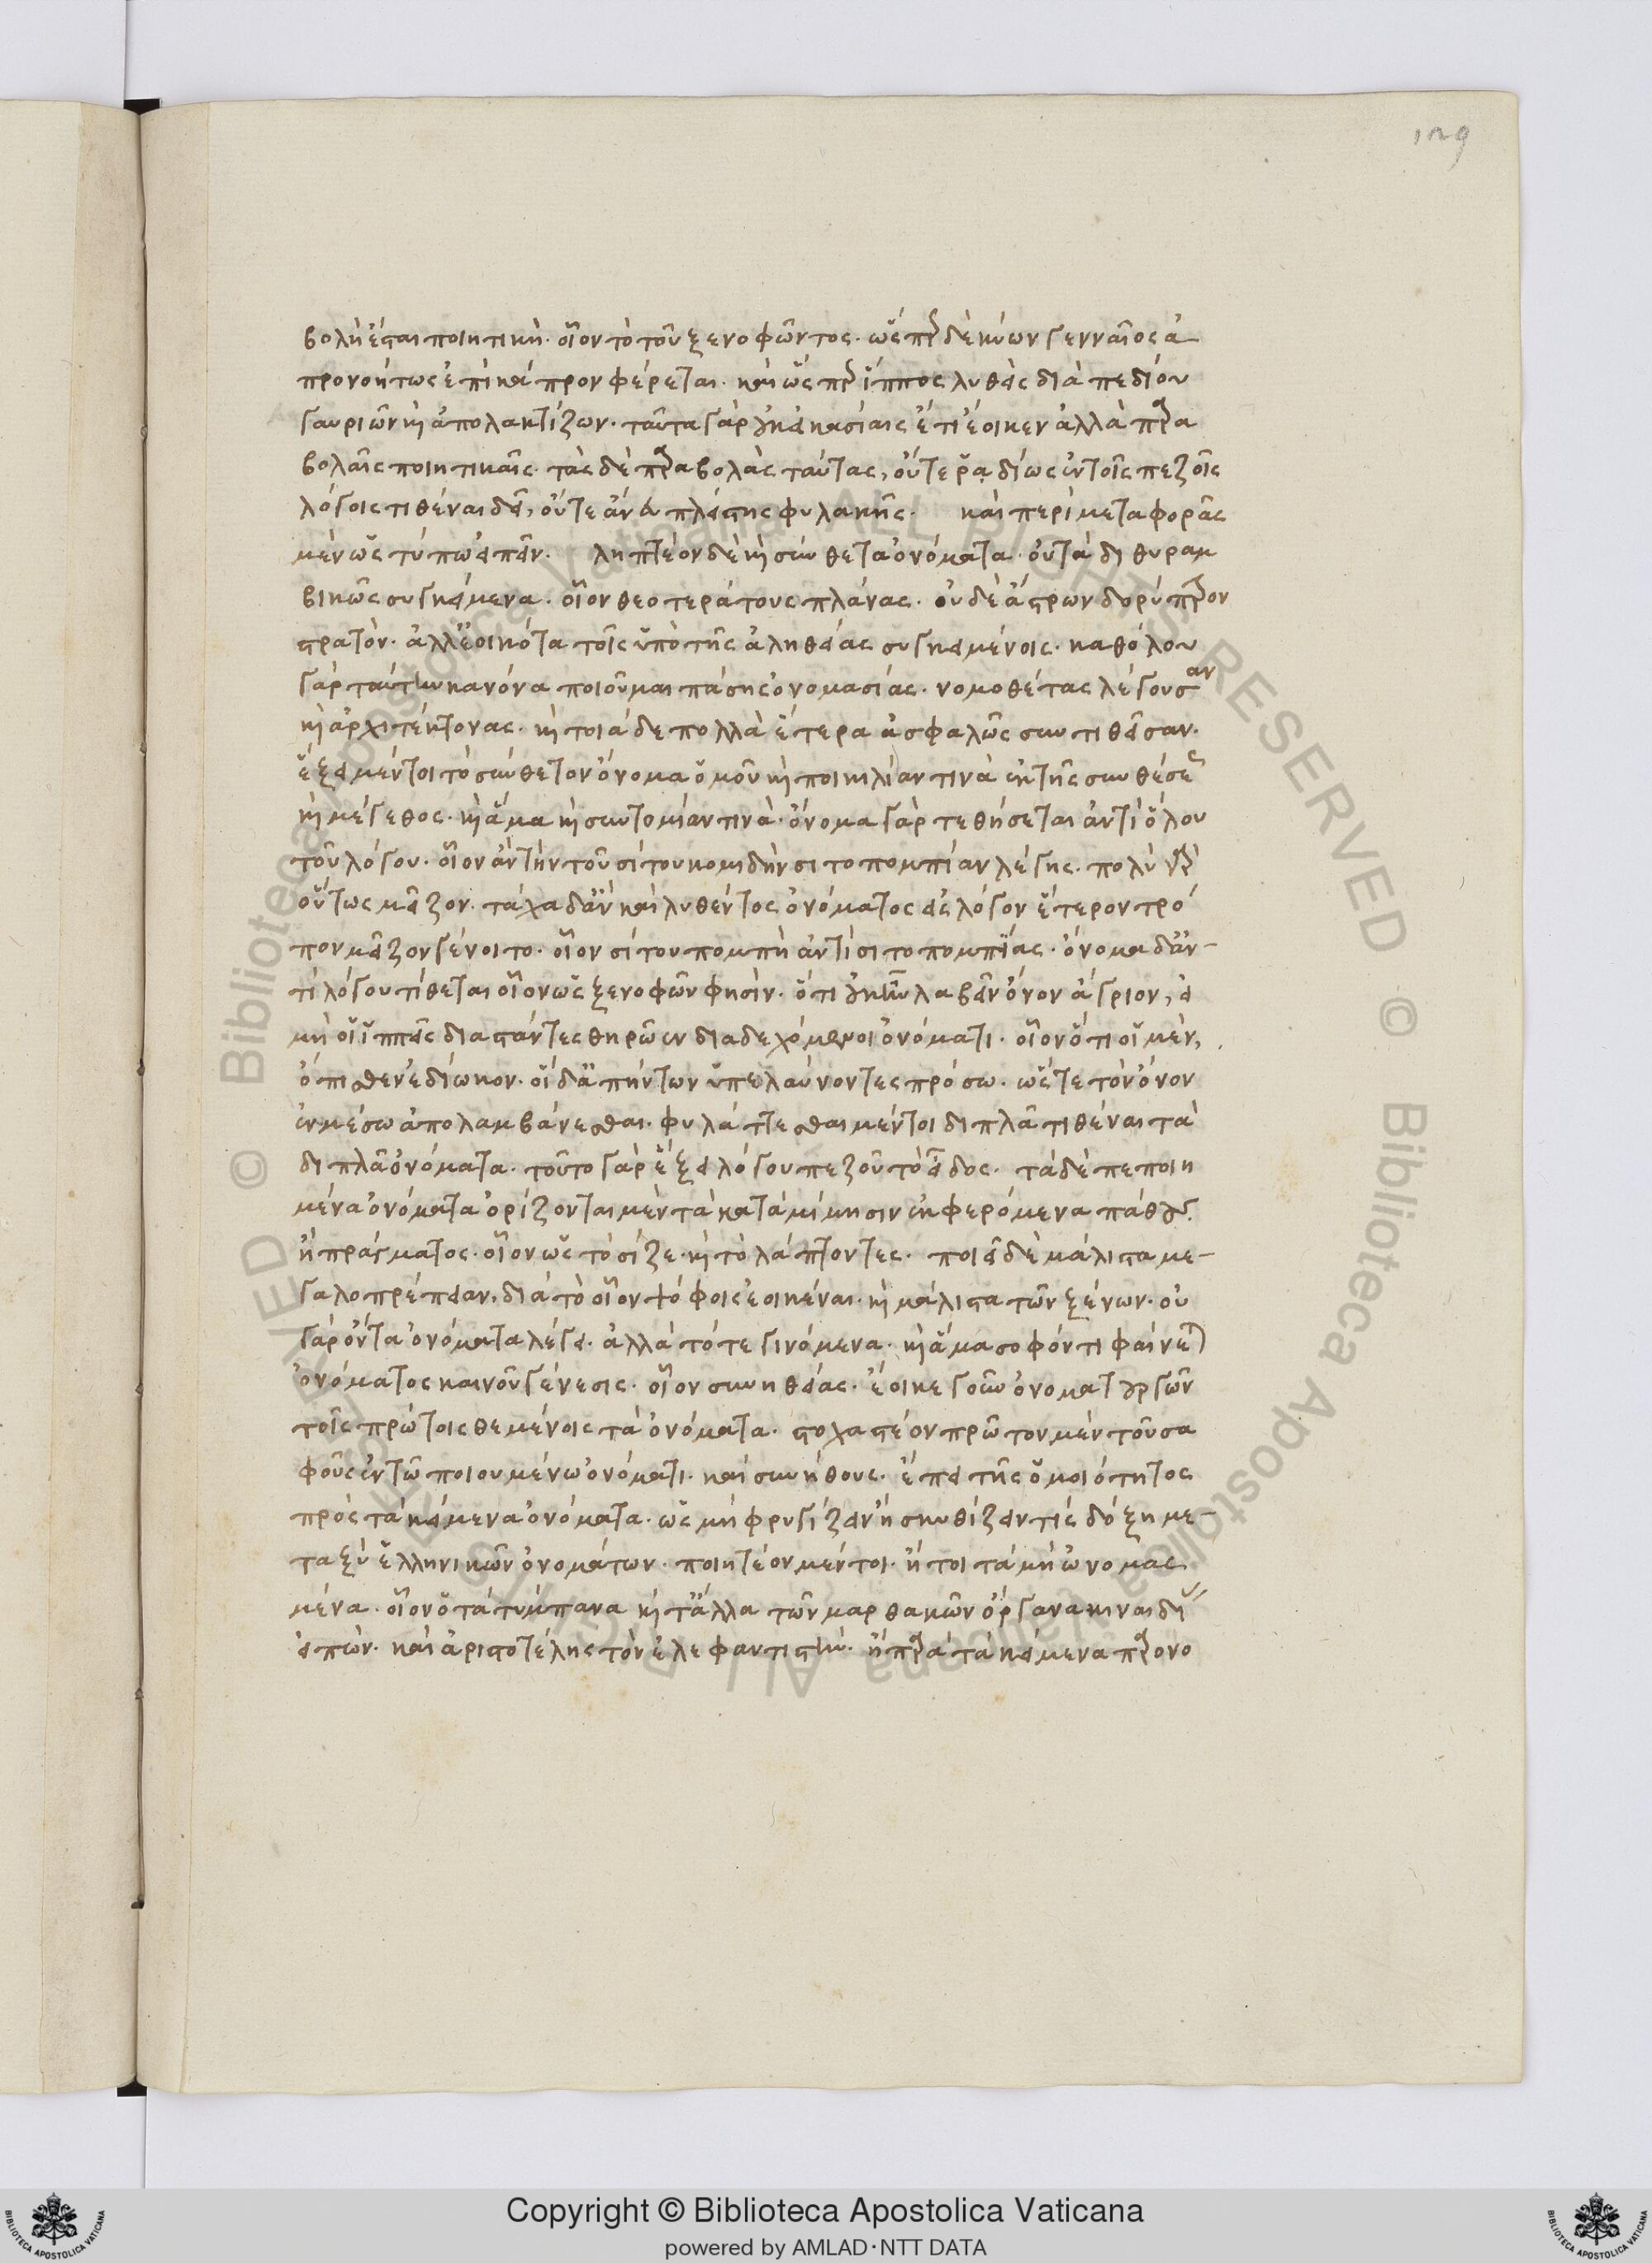 129
βολὴ ἔσται ποιητικὴ. οἷον τὸ τοῦ ξενοφῶντος. ὥσπερ δὲ κύων γενναῖος ἀ
προνοήτως ἐπὶ κάπρον φέρεται. καὶ ὥσπερ ἵππος λυθεὶς διὰ πεδίου
γαυριῶν καὶ ἀπολακτίζων. ταῦτα γὰρ οὐκ εἰκασίαις ἔτι ἔοικεν ἀλλὰ παρα
βολαῖς ποιητικαῖς. τὰς δὲ παραβολὰς ταύτας, οὔτε ῥαδίως ἐν τοῖς πεζοῖς
λόγοις τιθέναι δεῖ, οὔτε ἄνευ πλείστης φυλακῆς. καὶ περὶ μεταφορᾶς
μὲν ὡς τύπω εἰπεῖν. ληπτέον δὲ καὶ σύνθετα ὀνόματα. οὐ τὰ διθυραμ
βικῶς συγκείμενα. οἷον θεοτεράτους πλάνας. οὐδὲ ἄστρων δορύπυρον
στρατὸν. ἀλλ' ἐοικότα τοῖς ὑπὸ τῆς ἀληθείας συγκειμένοις. καθόλου
γὰρ ταύτην κανόνα ποιοῦμαι πάσης ὀνομασίας. νομοθέτας λέγουσαν
καὶ ἀρχιτέκτονας. καὶ τοιάδε πολλὰ ἕτερα ἀσφαλῶς συντιθεῖσαν.
ἕξει μέντοι τὸ σύνθετον ὄνομα ὁμοῦ καὶ ποικιλίαν τινὰ ἐκ τῆς συνθέσεως
καὶ μέγεθος. καὶ ἅμα καὶ συντομίαν τινὰ. ὄνομα γὰρ τεθήσεται ἀντὶ ὅλου
τοῦ λόγου. οἷον ἂν τὴν τοῦ σίτου κομιδὴν σιτοπομπίαν λέγης. πολὺ γὰρ
οὕτως μεῖζον. τάχα δ' ἂν καὶ λυθέντος ὀνόματος εἰς λόγον ἕτερον τρό
πον μεῖζον γένοιτο. οἷον σίτου πομπὴ ἀντὶ σιτοπομπίας. ὄνομα δ' ἀν-
τὶ λόγου τίθεται οἷον ὡς ξενοφῶν φησίν. ὅτι οὐκ ἦν λαβεῖν ὄνον ἄγριον, εἰ
μὴ οἱ ἱππεῖς διαστάντες θηρῶεν διαδεχόμενοι ὀνόματι. οἷον ὅτι οἱ μὲν,
ὄπισθεν ἐδίωκον. οἱ δ' ἀπήντων ὑπελαύνοντες πρόσω. ὥστε τὸν ὄνον
ἐν μέσω ἀπολαμβάνεσθαι. φυλάττεσθαι μέντοι διπλᾶ τιθέναι τὰ
διπλᾶ ὀνόματα. τοῦτο γὰρ ἔξει λόγου πεζοῦ τὸ εἶδος. τὰ δὲ πεποιη
μένα ὀνόματα ὁρίζονται μὲν τὰ κατὰ μίμησιν ἐκφερόμενα πάθους
ἢ πράγματος. οἷον ὡς τὸ σίζε. καὶ τὸ λάπτοντες. ποιεῖ δὲ μάλιστα με-
γαλοπρέπειαν, διὰ τὸ οἷον ψόφοις ἐοικέναι. καὶ μάλιστα τῶν ξένων. οὐ
γὰρ ὄντα ὀνόματα λέγει. ἀλλὰ τότε γινόμενα. καὶ ἅμα σοφόν τι φαίνεται
ὀνόματος καινοῦ γένεσις. οἷον συνηθείας. ἔοικε γοῦν ὀνοματουργῶν
τοῖς πρώτοις θεμένοις τὰ ὀνόματα. στοχαστέον πρῶτον μὲν τοῦ σα
φοῦς ἐν τῶ ποιουμένω ὀνόματι. καὶ συνήθους. ἔπει τῆς ὁμοιότητος
πρὸς τὰ κείμενα ὀνόματα. ὡς μὴ φρυγίζειν ἢ σκυθίζειν τις δόξη με-
ταξὺ ἑλληνικῶν ὀνομάτων. ποιητέον μέντοι. ἤτοι τὰ μὴ ὠνομασ
μένα. οἷον ὁ τὰ τύμπανα καὶ τἄλλα τῶν μαρθακῶν ὄργανα κιναιδίας
εἰπών. καὶ ἀριστοτέλης τὸν ἐλεφαντιστὴν. ἢ παρὰ τὰ κείμενα παρονο
Copyright © Biblioteca Apostolica Vaticana
powered by AMLAD·NTT DATA